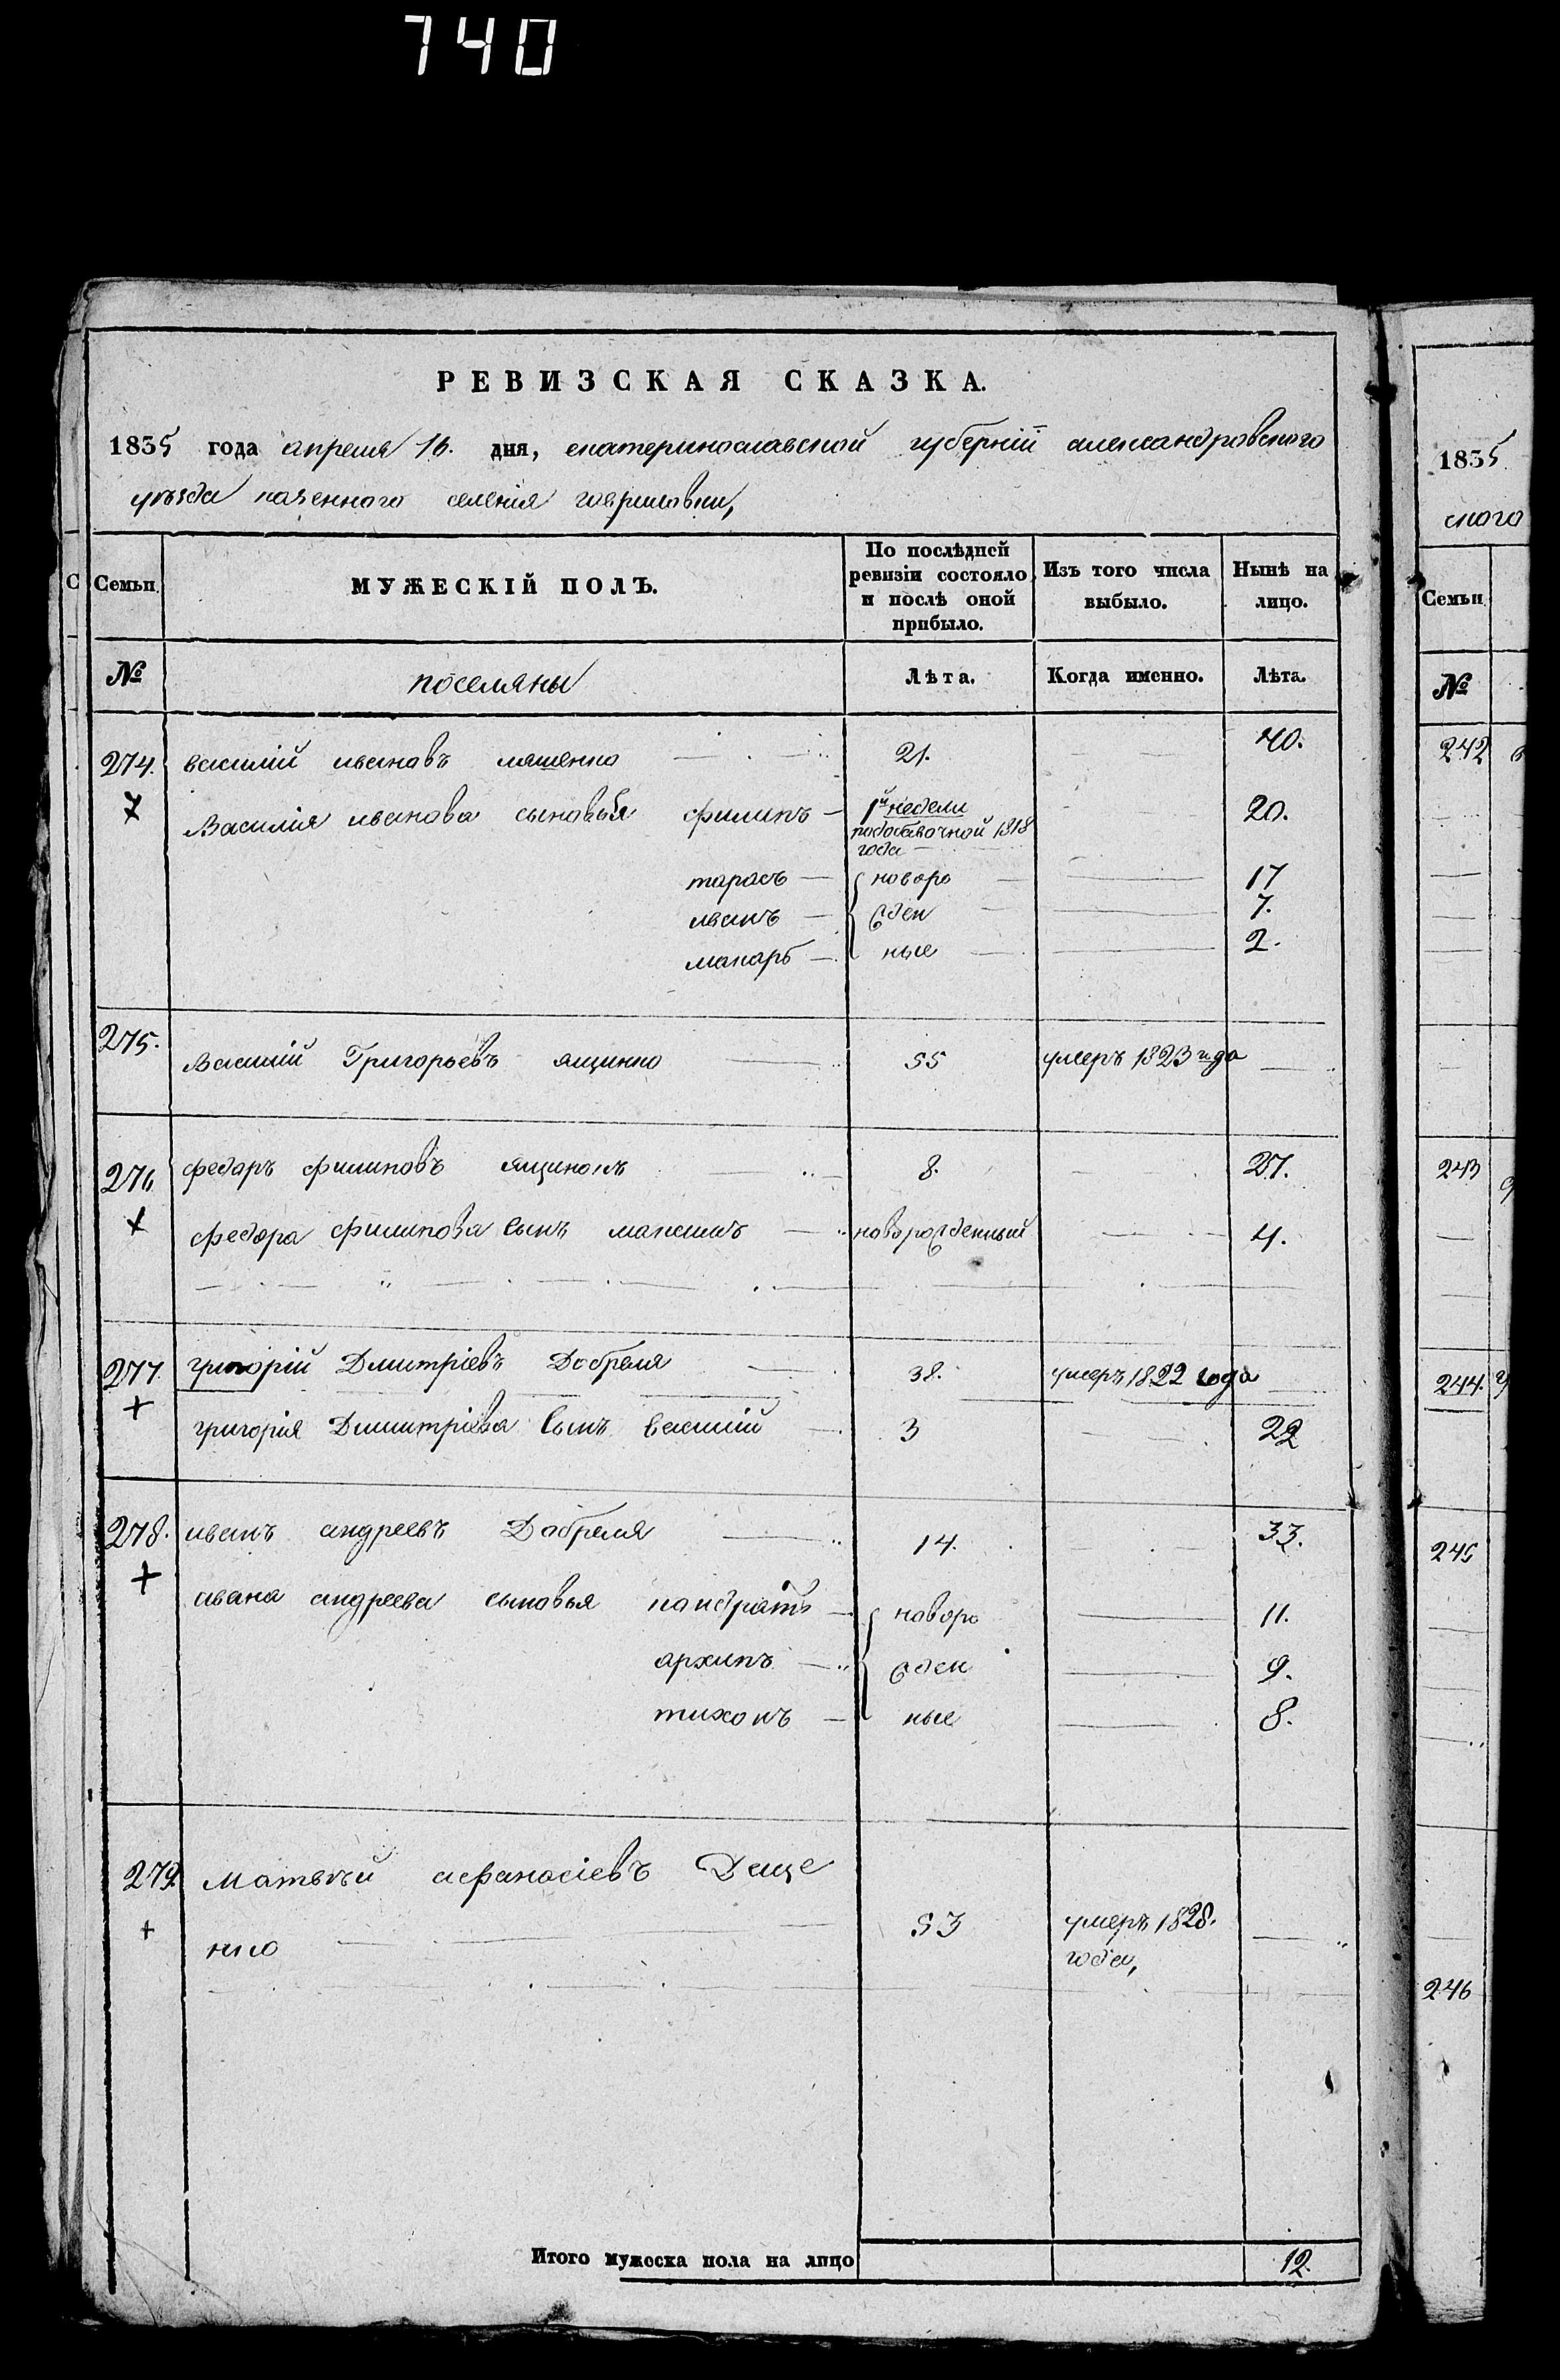 740
РЕВИЗСКАЯ СКАЗКА.
1835 года апреля 16. дня, екатеринославской губерніи александровского
уѣзда казенного селенія гавриловки,
Семьи МУЖЕСКІЙ ПОЛЪ. По послѣдней ревизіи состояло и послѣ оной прибыло. Изъ того числа выбыло. Нынѣ на лицо.
№ поселяны Лѣта. Когда именно. Лѣта.
274. василій ивановъ 21. 40.
Василія иванова сыновья филипъ 1й недели 1818 года 20.
тарасъ новоро 17
иванъ жден 7.
макаръ ные 2.
275. Василій Григорьевъ ященко 55 умеръ 1823 года
276. федоръ филиповъ 8. 27.
федора филипова сынъ новорожденный 4.
277. григорій Дмитріевъ Добреля 38. умеръ 1822 года
григорія Дмитріева сынъ василій 3 22
278. иванъ андреевъ Добреля 14. 33.
ивана андреева сыновья новоро 11.
архипъ жден 9.
тихонъ ные 8.
279. Матвѣй афанасіевъ Деще
нко 53 умеръ 1828. года,
Итого мужеска пола на лицо 12.
1835
ского
Семьи
№
242
243
244.
245
246